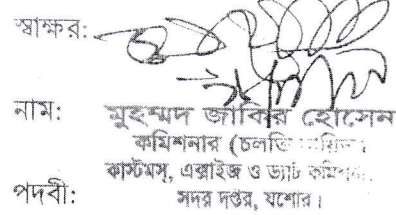 স্বাক্ষর:
নাম: মুহম্মদ জাকির হোসেন
কমিশনার (চলতি
কাস্টমস্, এক্সাইজ ও ভ্যাট
পদবী: সদর দপ্তর, যশোর।